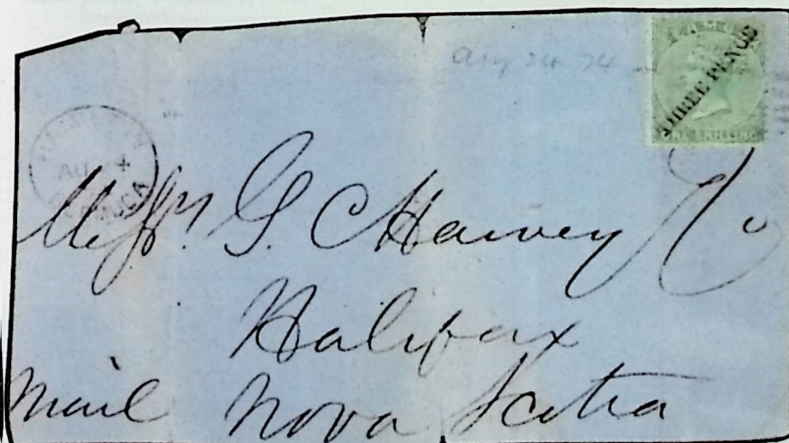 Aug 24 74
THREE PENCE
ONE SHILLING
AU 4
Messrs. G. C Harvey & Co
Halifax
Mail Nova Scotia